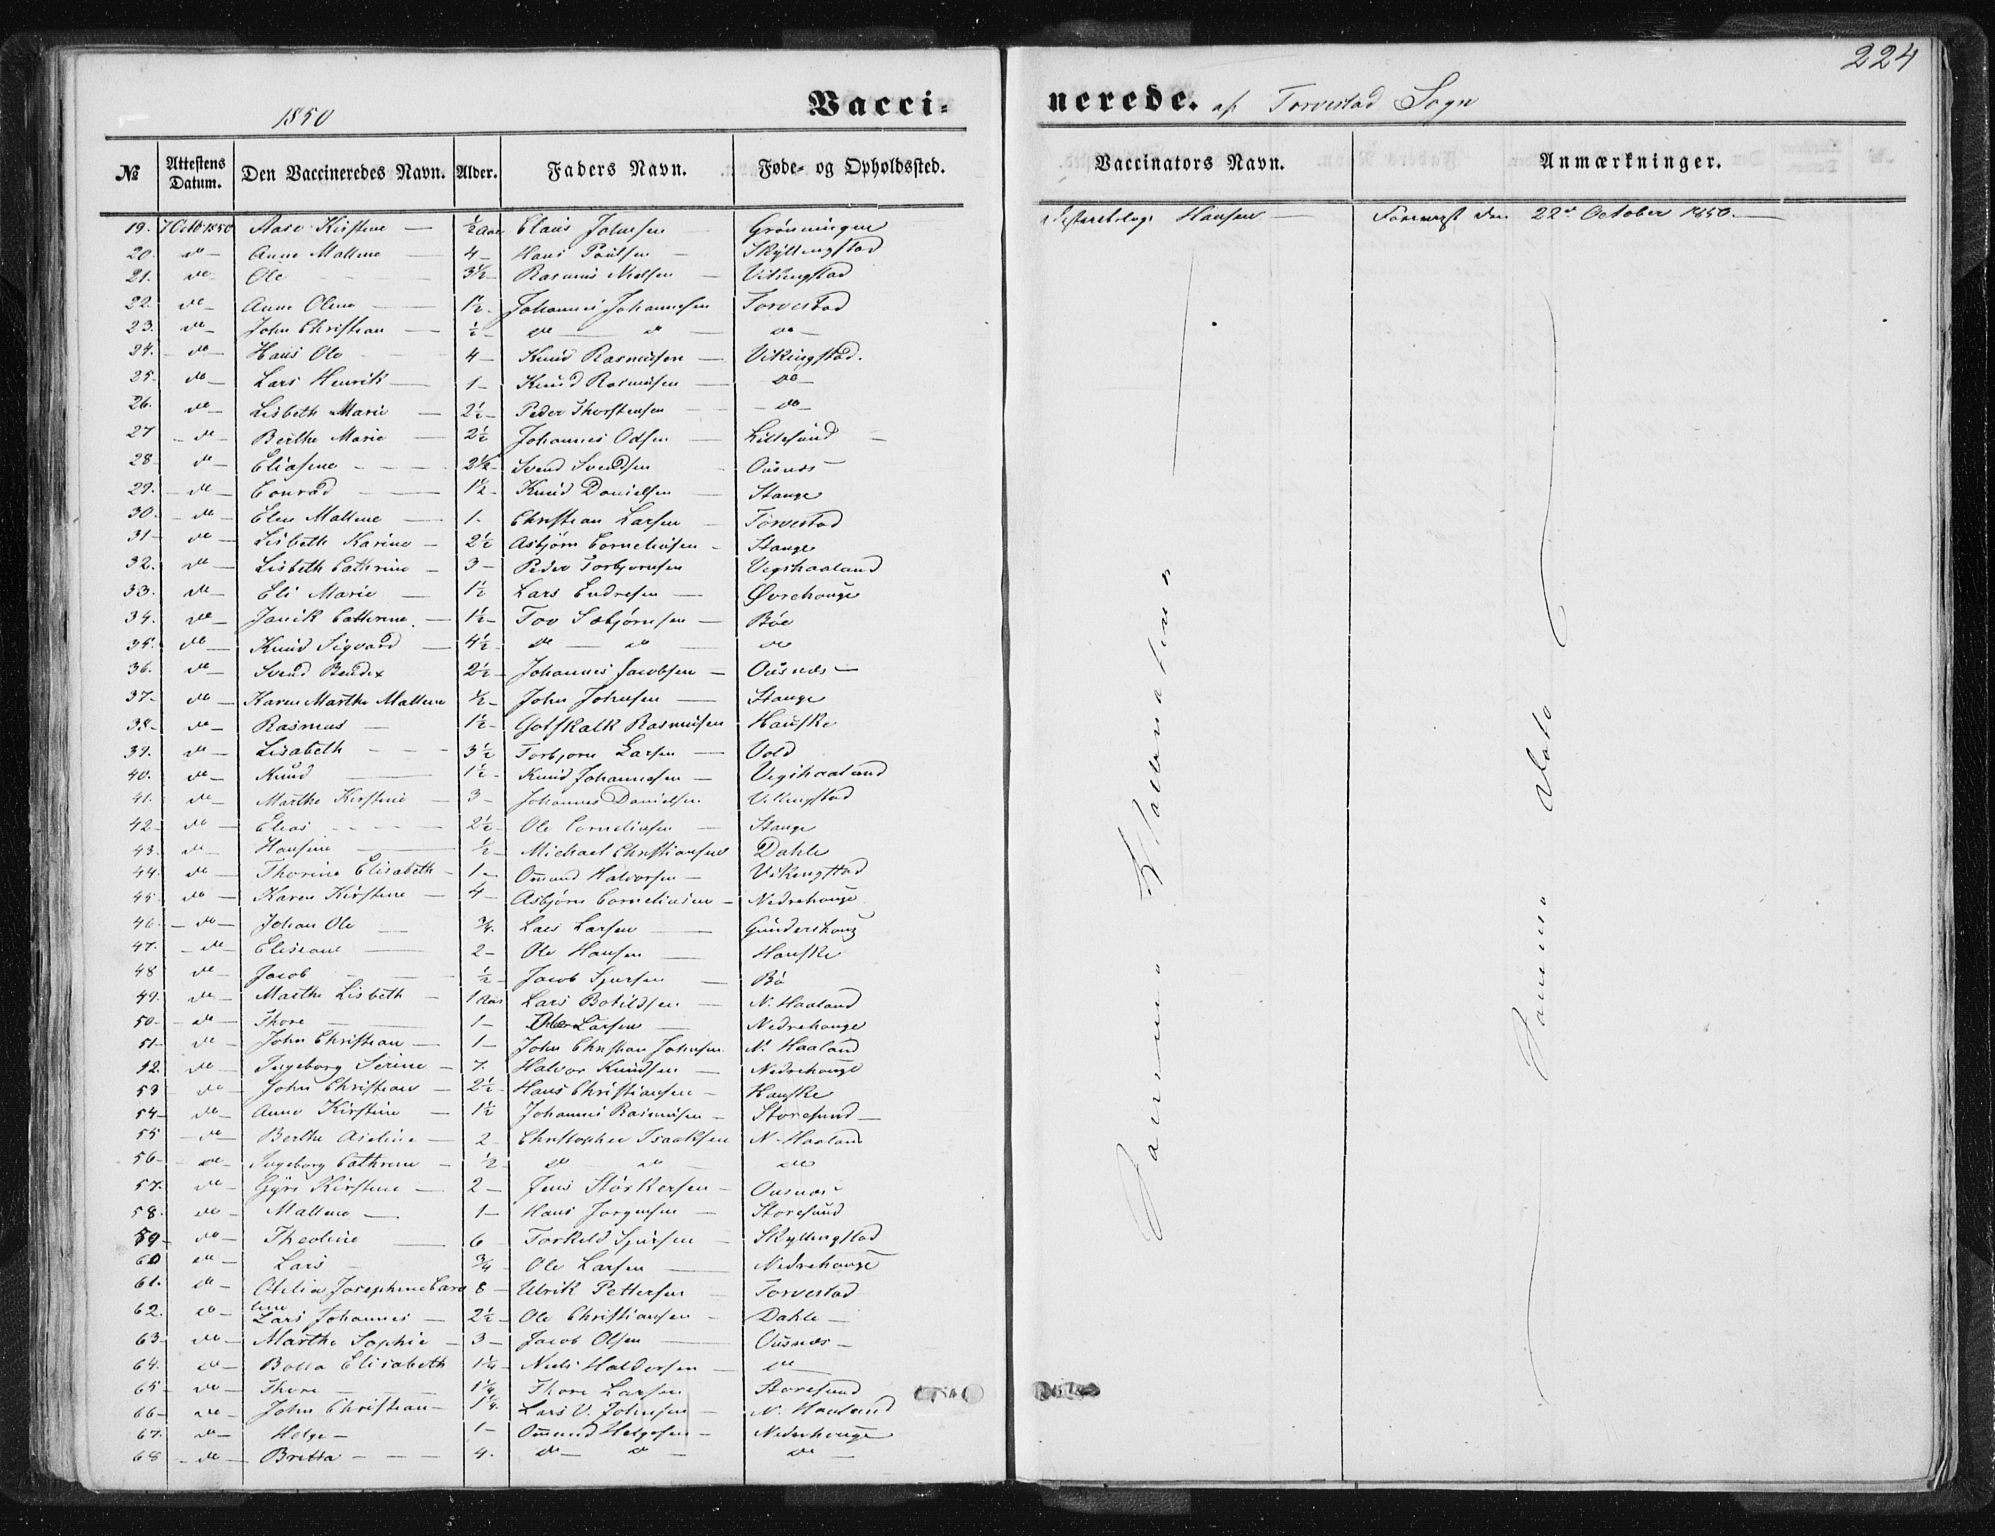 224
1850
Vacci-
nerede. af Torvestad Sogn
№ Attestens Datum. Den Vaccineredes Navn. Alder. Faders Navn. Føde- og Opholdssted. Vaccinators Navn. Anmærkninger.
19. 7 Octb 1850 Kirstine — ½ Aar Claus Johnsen Grønningen Hansen — Foreviist den 22de October 1850. —
20. do — Anne Mallene — 4 — Hans Poulsen — Skyllingstad
21. do Ole 3½ — Rasmus Nielsen — Vikingstad
22. do — Anne Olene — 1½ — Johannes Johannesen Torvestad
23. do — John Christian — ½ — do — do — do —
24. — do — Hans Ole 4 — Knud Rasmusen — Vikingstad.
25. do — Lars Henrik — 1 — Knud Rasmusen — do —
26. do — Lisbeth Marie — 2½ — Peder Thorstensen — — do —
27 — do — Berthe Marie — 2½ Johannes Odsen — Lillesund —
28 — do — Eliasine — 2½ — Svend Svendsen Ousnes —
29. — do — Conrad — 1½ — Knud Danielsen — Stange
30. — do — Elen Mallene — 1 — Christian Larsen — Torvestad
31 — do — Lisbeth Karine — 2½ Asbjørn Corneliusen — Stange
32. do — Lisbeth Cathrine — 3 — Peder Torbjornsen Vegshaaland
33. do — Eli Marie — 1½ Lars Endresen — Øvrehouge
34. do — Janik Cathrine — 1½ — Tov Sæbjørnsen — Bøe
35. do — Knud Sigvard — 4½ — do — do — do
36. do — Svend Bendix 2½ — Johannes Jacobsen — Ousnes —
37. do — Karen Marthe Mallene ½ — John Johnsen — Stange
38. — do — Rasmus — 1½ — Gotskalk Rasmusen Hauske
39. do — Lisabeth — 3½ Torbjorn Larsen — Vold
40. do — Knud — 1½ — Knud Johannesen — Vegshaaland
41. do — Marthe Kirstine — 3 — Johannes Danielsen Vikingstad
42 — do — Elias — 2½ — Ole Corneliusen — Stange
43. do — Hansine — ½ — Michael Christiansen Dahle
44. do — Thorine Elisabeth — 1 — Omund Halvorsen — Vikingstad
45. do — Karen Kirstine — 4 — Asbjørn Corneliusen — Nedrehouge
46 — — do — Johan Ole — ¾. Lars Larsen — Gundershoug
47. — do — Elisiane — 2 — Ole Hansen — Hauske
48 do — Jacob — ½ — Jacob Sjursen — Bø
49. do — Marthe Lisbeth — 1 Aar Lars Botildsen — N. Haaland
50. — do — Thore — 1 — Larsen — Nedrehouge
51 — do — John Christian — 1 — John Christian Johnsen N. Haaland
12. do — Ingeborg Serine — 7. Halvor Knudsen — Nedrehouge
53 — do — John Christian — 2½ — Hans Christiansen — Hauske
54 — do — Anne Kirstine — 1½ Johannes Rasmusen — Storesund —
55 — do — Berthe Aseline — 2 — Christopher Isaaksen N. Haaland
56 — — do — Ingeborg Cathrine — ½ — do — do — do
57. do — Gyri Kirstine — 2 — Jens Størkersen — Ousnes —
58. do — Mallene — 1 — Hans Jorgensen — Storesund
59 — do — Theoline — 6 — Torkild Sjursen — Skyllingstad
60 do — Lars — ¾ Ole Larsen — Nedrehouge
61. do — Otilia Josephine Caro 8 — Ulrik Pettersen — Torvestad
line
62. do — Lars Johannes — 2½ — Ole Christiansen — Dahle —
63 — do — Marthe Sophie — 3 — Jacob Olsen — Ousnes —
64. do — Bolla Elisabeth 1¼ — Niels Haldorsen — do —
65 — do — Thore — 1¼ — Thore Larsen Storesund
66 — do — John Christian — 1¼. Lars V. Johnsen — N. Haaland
67. — do — Helge — 1 — Omund Helgesen — Nedrehouge
68 — do — Britta — 4. do — do do —